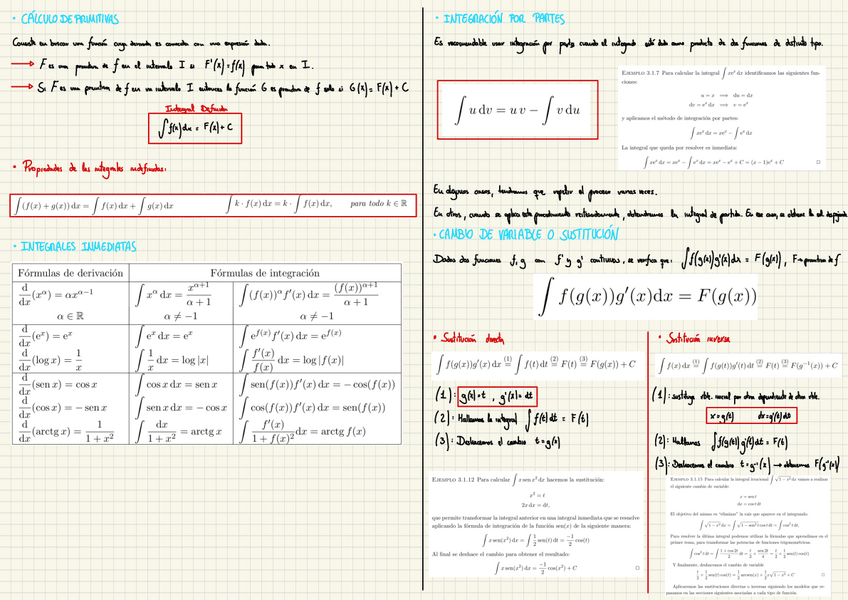 · CÁLCULO DE PRIMITIVAS
Consiste en buscar una función cuya derivada es conocida con una expresión dada.
→ F es una primitiva de f en el intervalo I si F'(x) = f(x) para todo x en I.
→ Si F es una primitiva de f en un intervalo I entonces la función G es primitiva de f solo si G(x) = F(x) + C
Integral Definida
∫ f(x) dx = F(x) + C
· Propiedades de las integrales indefinidas:
∫ (f(x) + g(x)) dx = ∫ f(x) dx + ∫ g(x) dx    ∫ k · f(x) dx = k · ∫ f(x) dx,    para todo k ∈ ℝ
· INTEGRALES INMEDIATAS
Fórmulas de derivación    Fórmulas de integración
d/dx (x^α) = αx^(α−1)    ∫ x^α dx = x^(α+1)/(α+1)    ∫ (f(x))^α f'(x) dx = (f(x))^(α+1)/(α+1)
α ∈ ℝ    α ≠ −1    α ≠ −1
d/dx (e^x) = e^x    ∫ e^x dx = e^x    ∫ e^(f(x)) f'(x) dx = e^(f(x))
d/dx (log x) = 1/x    ∫ 1/x dx = log |x|    ∫ f'(x)/f(x) dx = log |f(x)|
d/dx (sen x) = cos x    ∫ cos x dx = sen x    ∫ sen(f(x))f'(x) dx = − cos(f(x))
d/dx (cos x) = − sen x    ∫ sen x dx = − cos x    ∫ cos(f(x))f'(x) dx = sen(f(x))
d/dx (arctg x) = 1/(1 + x²)    ∫ dx/(1 + x²) = arctg x    ∫ f'(x)/(1 + f(x)²) dx = arctg f(x)
· INTEGRACIÓN POR PARTES
Es recomendable usar integración por partes cuando el integrando está dado como producto de dos funciones de distinto tipo.
∫ u dv = u v − ∫ v du
EJEMPLO 3.1.7 Para calcular la integral ∫ xe^x dx identificamos las siguientes funciones:
u = x ⟹ du = dx
dv = e^x dx ⟹ v = e^x
y aplicamos el método de integración por partes:
∫ xe^x dx = xe^x − ∫ e^x dx
La integral que queda por resolver es inmediata:
∫ xe^x dx = xe^x − ∫ e^x dx = xe^x − e^x + C = (x − 1)e^x + C □
En algunos casos, tendremos que repetir el proceso varias veces.
En otros, cuando se aplica este procedimiento reiteradamente, obtendremos la integral de partida. En ese caso, se obtiene la
· CAMBIO DE VARIABLE O SUSTITUCIÓN
Dadas dos funciones f, g con f' y g' continuas, se verifica que: ∫ f(g(x)) g'(x) dx = F(g(x)), F → primitiva de f
∫ f(g(x))g'(x)dx = F(g(x))
· Sustitución directa
∫ f(g(x))g'(x) dx =(1) ∫ f(t) dt =(2) F(t) =(3) F(g(x)) + C
(1): g(x) = t , g'(x) = dt
(2): Hallamos la integral ∫ f(t) dt = F(t)
(3): Deshacemos el cambio t = g(x)
EJEMPLO 3.1.12 Para calcular ∫ x sen x² dx hacemos la sustitución:
x² = t
2x dx = dt,
que permite transformar la integral anterior en una integral inmediata que se resuelve
aplicando la fórmula de integración de la función sen(x) de la siguiente manera:
∫ x sen(x²) dx = ∫ 1/2 sen(t) dt = −1/2 cos(t)
Al final se deshace el cambio para obtener el resultado:
∫ x sen(x²) dx = −1/2 cos(x²) + C □
· Sustitución inversa
∫ f(x) dx =(1) ∫ f(g(t))g'(t) dt =(2) F(t) =(3) F(g⁻¹(x)) + C
(1): sustituye vble. inicial por otra dependiente de otra vble.
x = g(t)    dx = g'(t) dt
(2): Hallamos ∫ f(g(t)) g'(t) dt = F(t)
(3): Deshacemos el cambio t = g⁻¹(x) → obtenemos F(g⁻¹(x))
EJEMPLO 3.1.15 Para calcular la integral irracional ∫ √(1 − x²) dx vamos a realizar
el siguiente cambio de variable:
x = sen t
dx = cos t dt
El objetivo del mismo es "eliminar" la raíz que aparece en el integrando.
∫ √(1 − x²) dx = ∫ √(1 − sen² t) cos t dt = ∫ cos² t dt,
Para resolver la última integral podemos utilizar la fórmulas que aprendimos en el
primer tema, para transformar las potencias de funciones trigonométricas.
∫ cos² t dt = ∫ (1 + cos 2t)/2 dt = t/2 + sen 2t/4 = t/2 + 1/2 sen(t) cos(t)
Y finalmente, deshacemos el cambio de variable
t/2 + 1/2 sen(t) cos(t) = 1/2 arcsen(x) + 1/2 x√(1 − x²) + C □
Aplicaremos las sustituciones directas o inversas siguiendo los modelos que se
pasamos en las secciones siguientes asociadas a cada tipo de función.